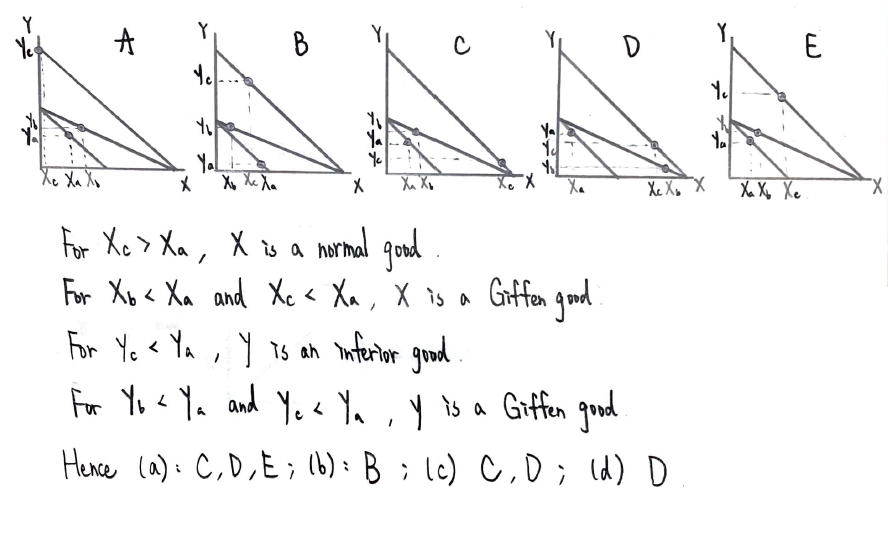 Y
Yc
Yb
Ya
Xc Xa Xb X
A
Y
Yc
Yb
Ya
Xb Xc Xa X
B
Y
Yb
Ya
Yc
Xa Xb Xc X
C
Y
Ya
Yc
Yb
Xa Xc Xb X
D
Y
Yc
Yb
Ya
Xa Xb Xc X
E
For Xc > Xa , X is a normal good .
For Xb < Xa and Xc < Xa , X is a Giffen good .
For Yc < Ya , Y is an inferior good .
For Yb < Ya and Yc < Ya , Y is a Giffen good .
Hence (a) : C, D, E ; (b) : B ; (c) C, D ; (d) D .